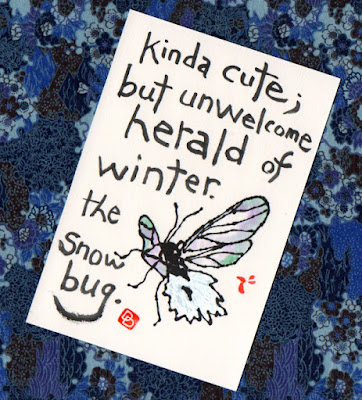 kinda cute;
but unwelcome
herald of
winter.
the
snow
bug.